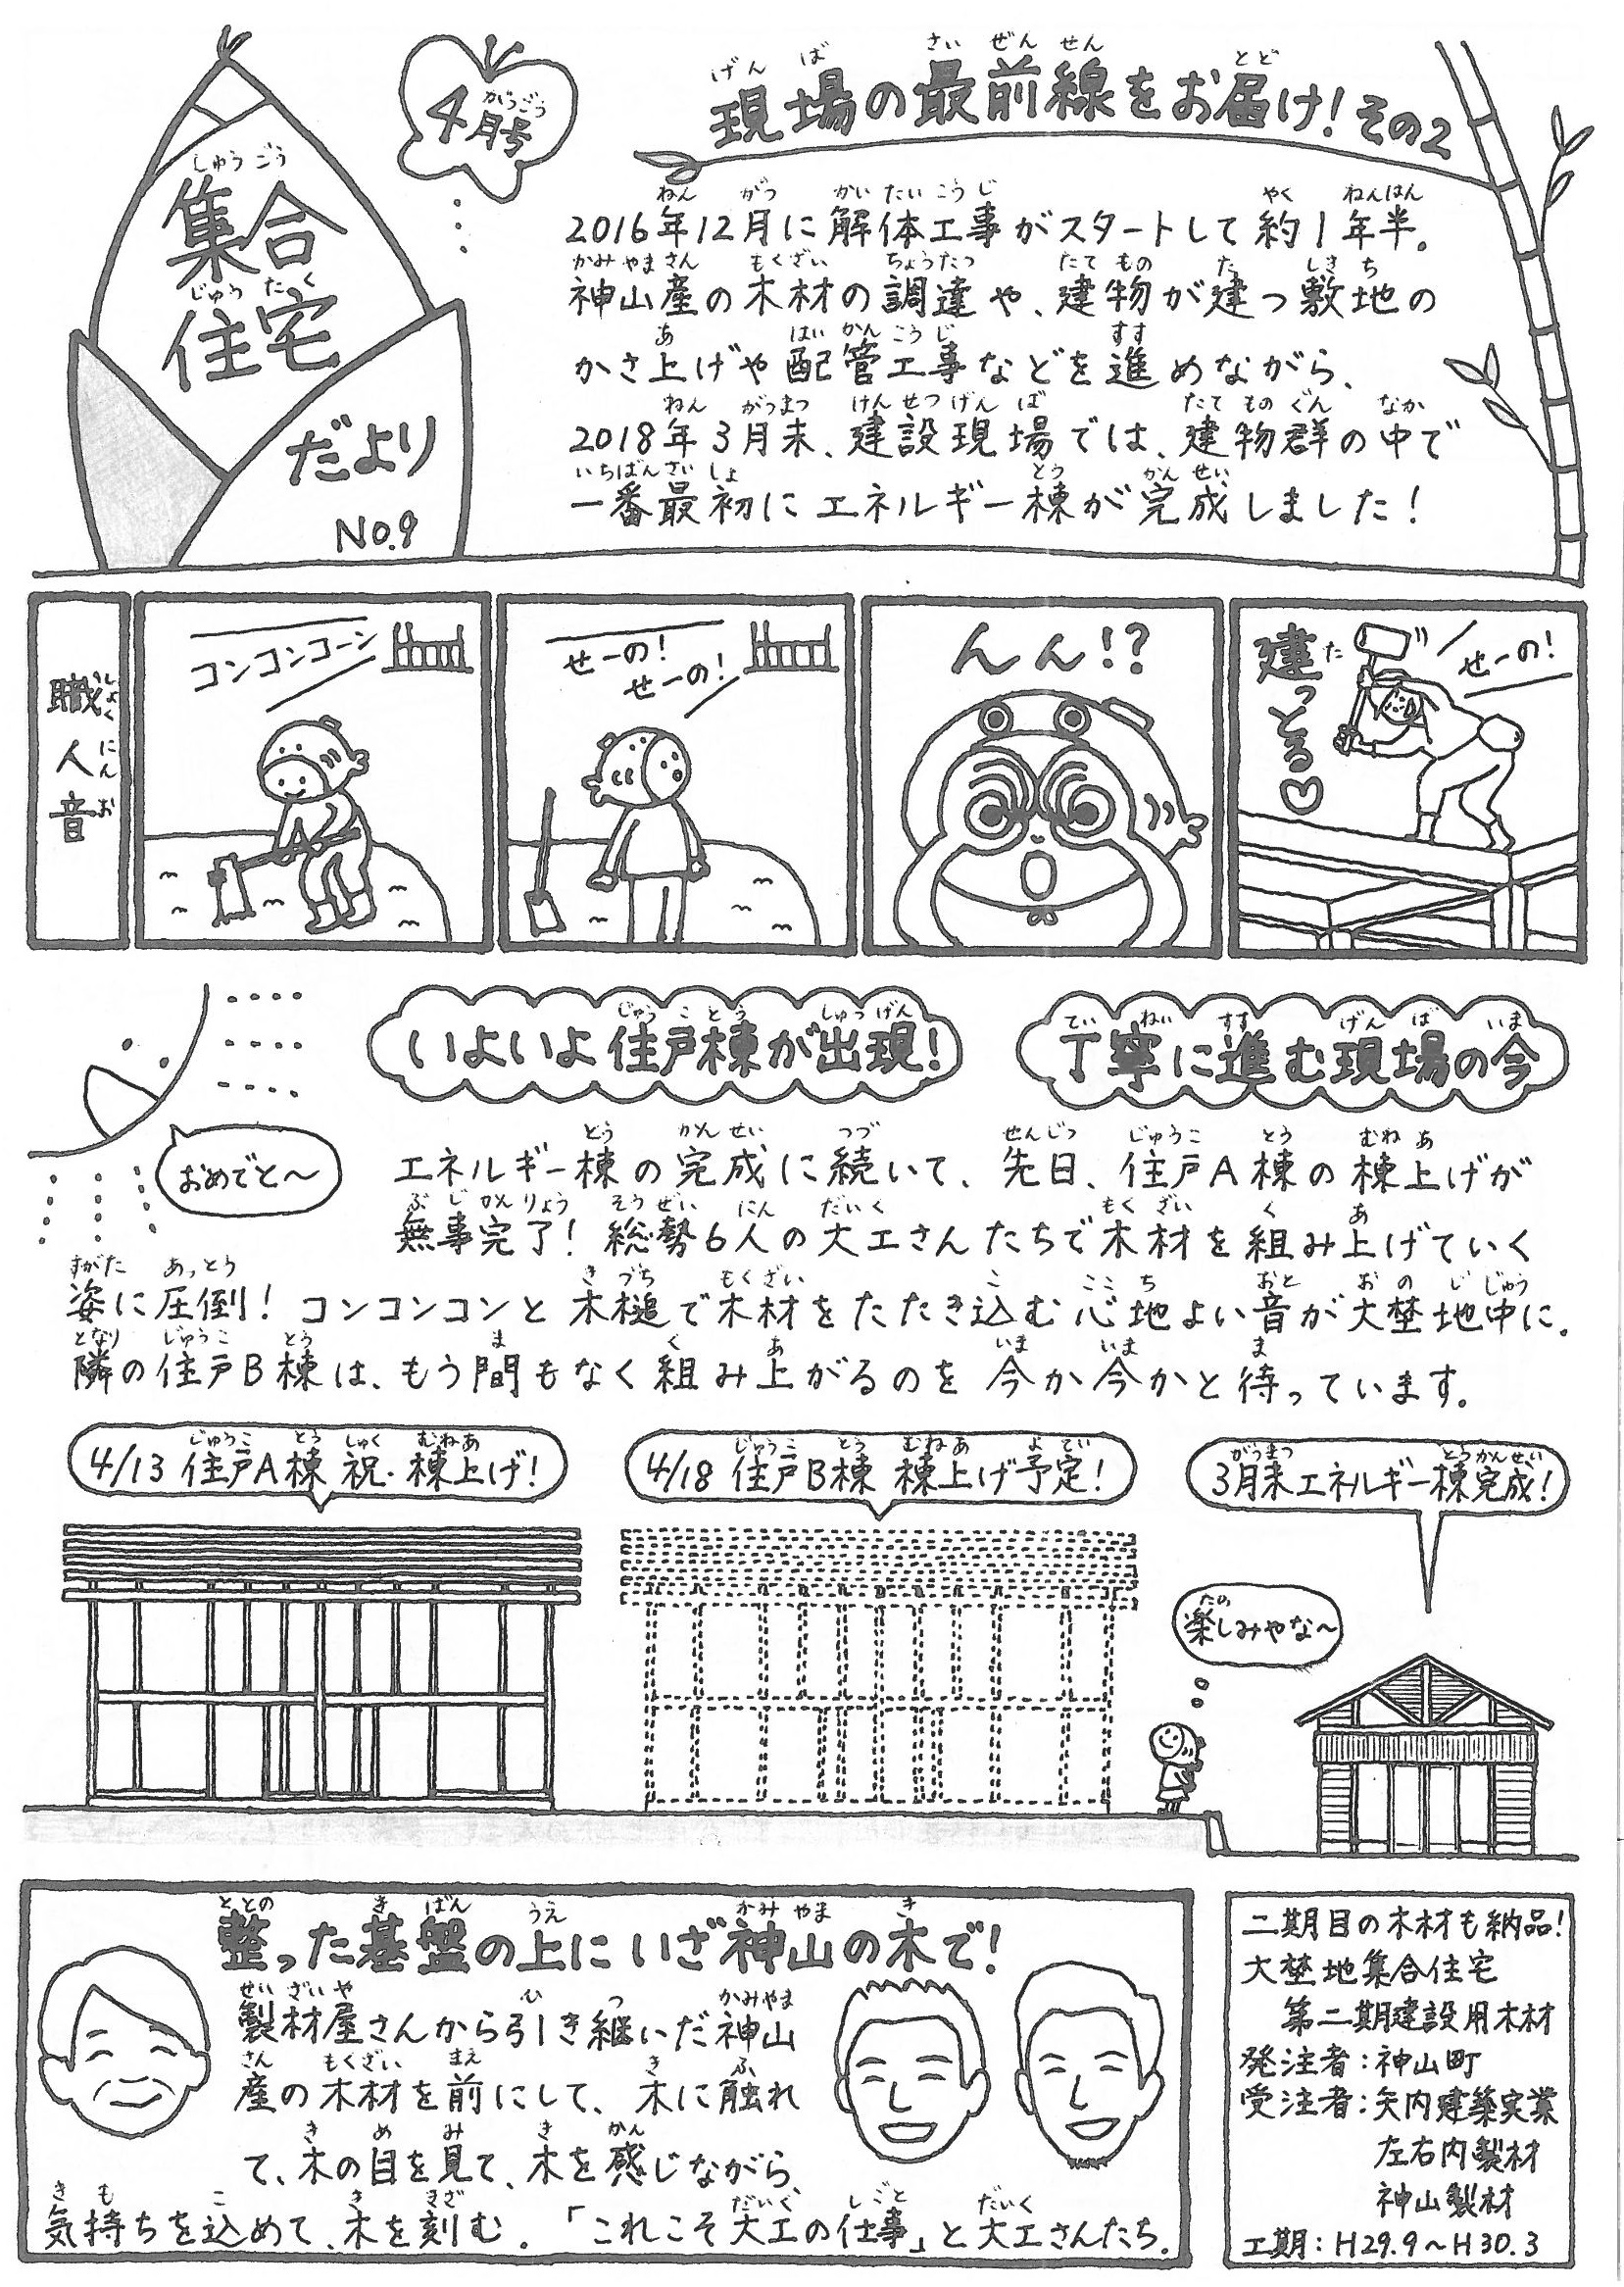 集合
住宅
だより
No.9
4月号
現場の最前線をお届け!その2
2016年12月に解体工事がスタートして約1年半。
神山産の木材の調達や、建物が建つ敷地の
かさ上げや配管工事などを進めながら、
2018年3月末、建設現場では、建物群の中で
一番最初にエネルギー棟が完成しました!
職人音
コンコンコーン
せーの!
せーの!
んん!?
建っとる♡
せーの!
いよいよ住戸棟が出現!
丁寧に進む現場の今
おめでと〜
エネルギー棟の完成に続いて、先日、住戸A棟の棟上げが
無事完了!総勢6人の大工さんたちで木材を組み上げていく
姿に圧倒!コンコンコンと木槌で木材をたたき込む心地よい音が大埜地中に。
隣の住戸B棟は、もう間もなく組み上がるのを今か今かと待っています。
4/13 住戸A棟 祝・棟上げ!
4/18 住戸B棟 棟上げ予定!
3月末エネルギー棟完成!
楽しみやな〜
整った基盤の上にいざ神山の木で!
製材屋さんから引き継いだ神山
産の木材を前にして、木に触れ
て、木の目を見て、木を感じながら、
気持ちを込めて、木を刻む。「これこそ大工の仕事」と大工さんたち。
二期目の木材も納品!
大埜地集合住宅
第二期建設用木材
発注者:神山町
受注者:矢内建築実業
左右内製材
神山製材
工期:H29.9〜H30.3